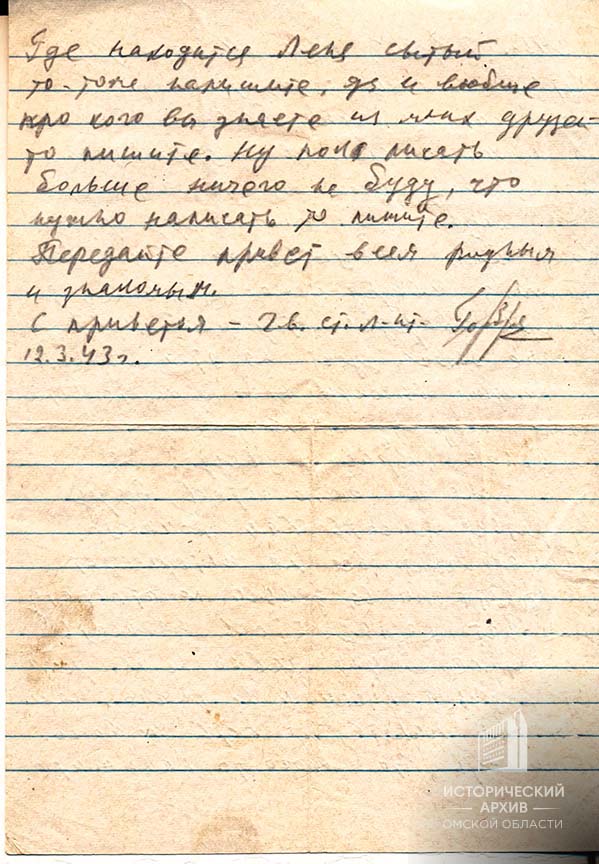 Где находится Леня сытый
то-тоже напишите, да и вообще
про кого вы знаете из моих друзей-
то пишите. Ну пока писать
больше ничего не буду, что
нужно написать то пишите.
Передайте привет всем родным
и знакомым.
С приветом - гв. ст. л-нт.
12.3.43 г.
ИСТОРИЧЕСКИЙ
АРХИВ
ОМСКОЙ ОБЛАСТИ